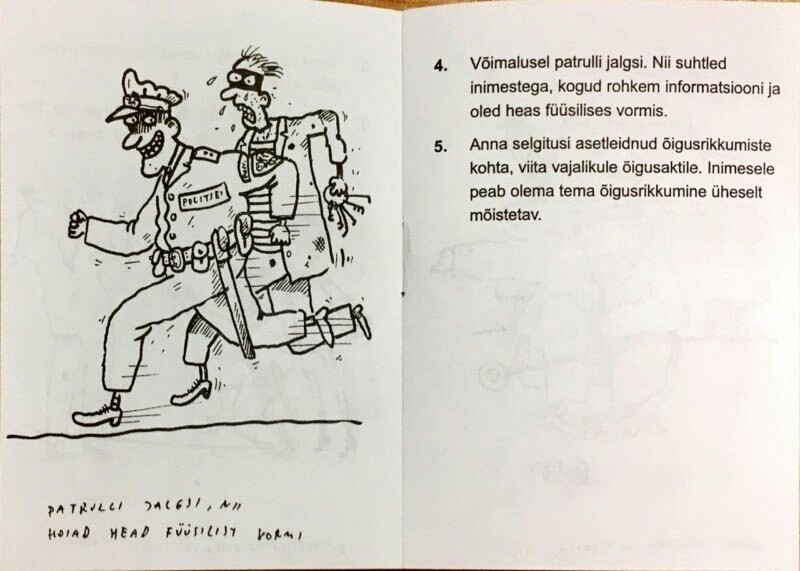 POLITSEI
PATRULLI JALGSI, NII
HOIAD HEAD FÜÜSILIST VORMI
4. Võimalusel patrulli jalgsi. Nii suhtled
inimestega, kogud rohkem informatsiooni ja
oled heas füüsilises vormis.
5. Anna selgitusi asetleidnud õigusrikkumiste
kohta, viita vajalikule õigusaktile. Inimesele
peab olema tema õigusrikkumine üheselt
mõistetav.